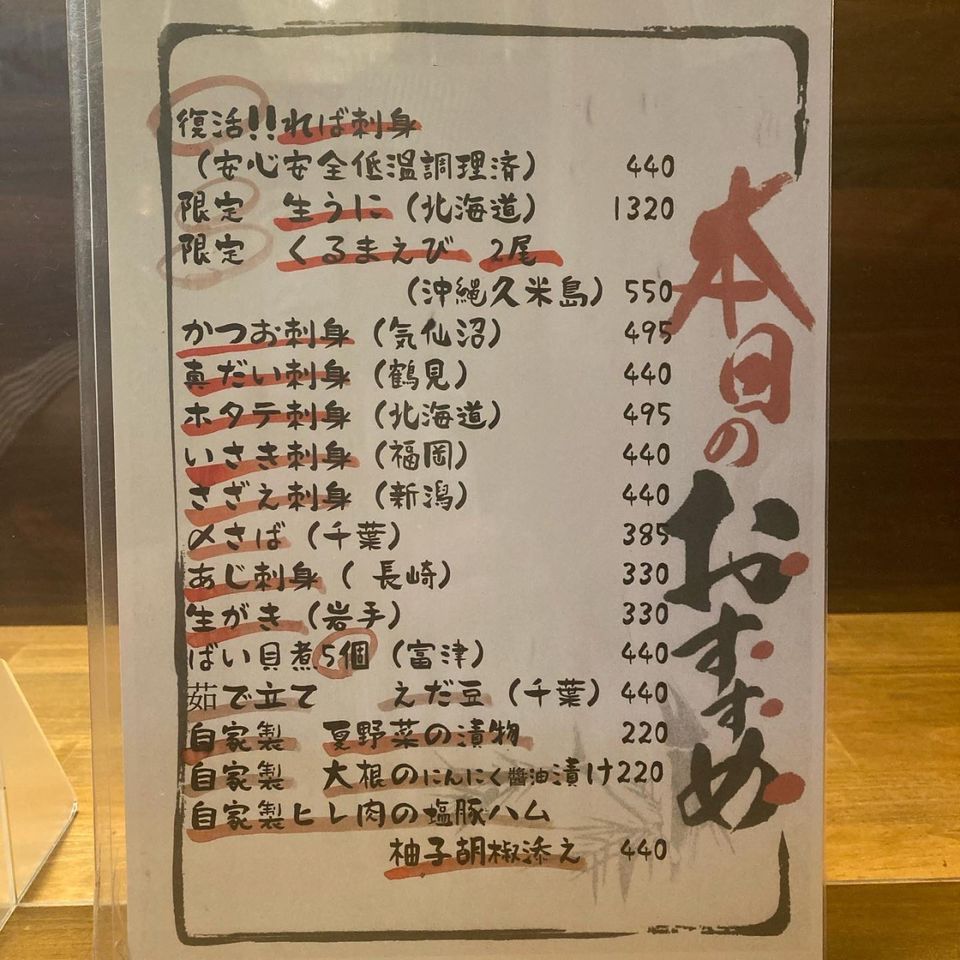 本日のおすすめ
復活!!れば刺身
(安心安全低温調理済) 440
限定 生うに (北海道) 1320
限定 くるまえび 2尾
(沖縄久米島) 550
かつお刺身 (気仙沼) 495
真だい刺身 (鶴見) 440
ホタテ刺身 (北海道) 495
いさき刺身 (福岡) 440
さざえ刺身 (新潟) 440
〆さば (千葉) 385
あじ刺身 (長崎) 330
生がき (岩手) 330
ばい貝煮5個 (富津) 440
茹で立て えだ豆 (千葉) 440
自家製 夏野菜の漬物 220
自家製 大根のにんにく醬油漬け220
自家製ヒレ肉の塩豚ハム
柚子胡椒添え 440